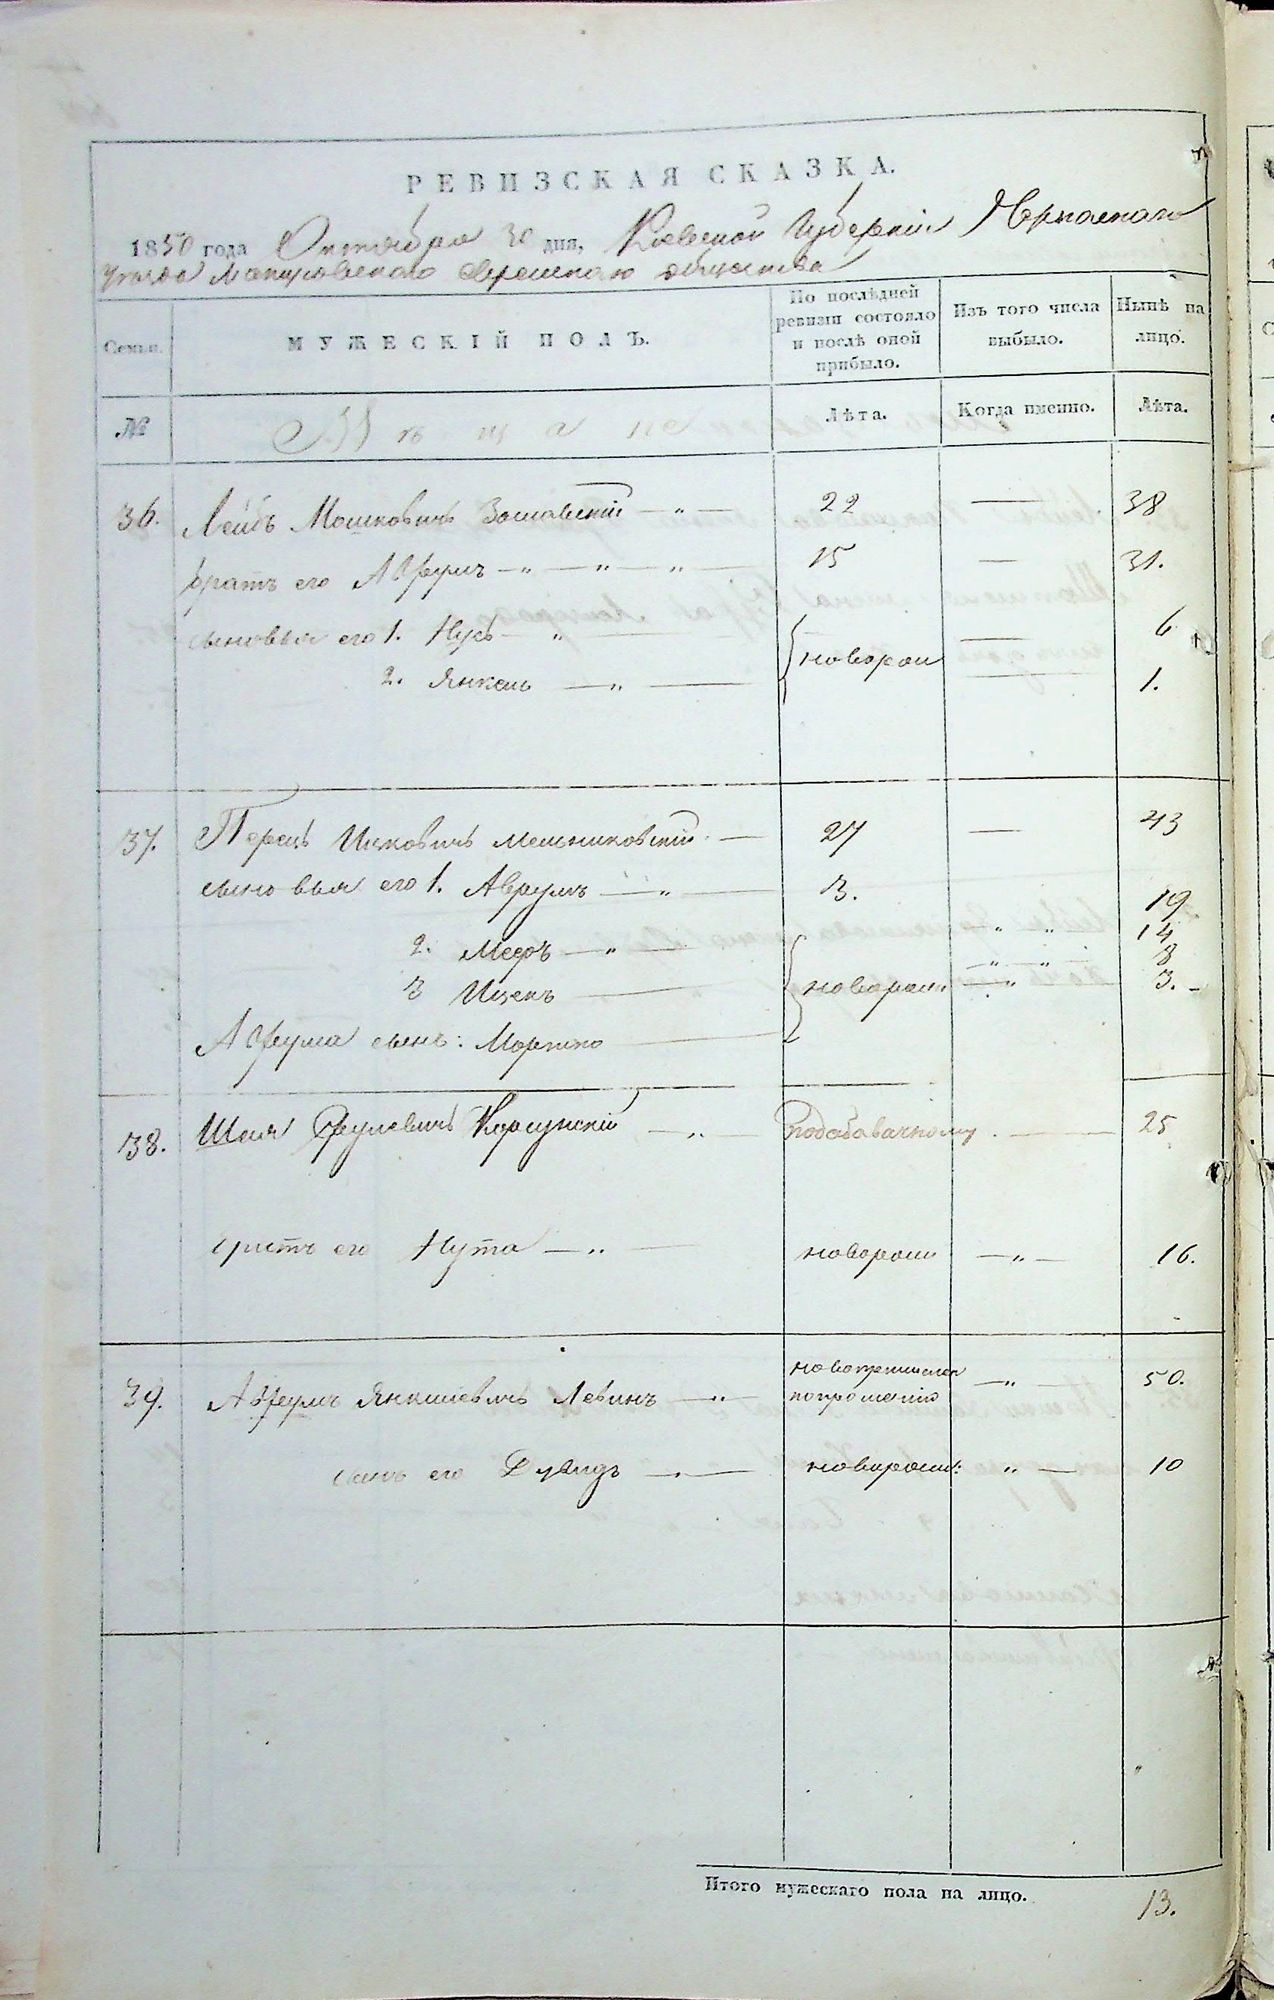 РЕВИЗСКАЯ СКАЗКА.
1850 года Октября 30 дня, Кіевской Губерніи Черкаскаго
уезда Мошуровскаго еврейскаго общества
Семьи. МУЖЕСКІЙ ПОЛЪ. По послѣдней ревизіи состояло и послѣ оной прибыло. Изъ того числа выбыло. Нынѣ на лицо.
№ Мѣщане Лѣта. Когда именно. Лѣта.
36. Лейбъ Мошковичъ Заславскій — „ — 22 — 38
братъ его Аврумъ — „ — „ — „ — 15 — 31.
сыновья его 1. Нусъ — „ — новорож — 6
2. Янкель — „ — — 1.
37. Перецъ Ицковичъ Мельниковскій — 27 — 43
сыновья его 1. Аврумъ — „ — 3. 19
2. Мееръ — „ — „ „ 14
3 Ицекъ — новорож. — „ — 8
Аврума сынъ: Моршко — 3.
38. Шая Срулевичъ Корсунскій — „ — подобавачному — 25
братъ его Нута — „ — новорож — „ — 16.
39. Аврумъ Янкелевичъ Левинъ — „ — новопричислен — „ — 50.
сынъ его Дувидъ — „ — новорож: „ — 10
Итого мужескаго пола на лицо. 13.